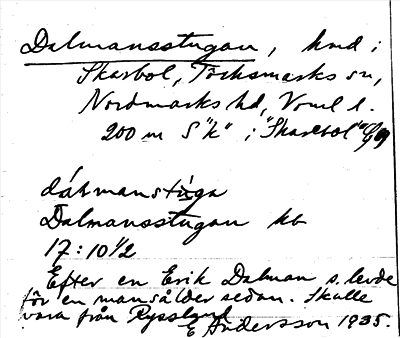 Dalmansstugan, hmd i
Skarbol, Töcksmarks sn,
Nordmarks hd, Vrml l.
200 m S "k" i "Skarbol"
dálmanstùga
Dalmansstugan kb
17:10½
Efter en Erik Dalman s. levde
för en mansålder sedan. Skulle
vara från Ryssland
E Andersson 1935.